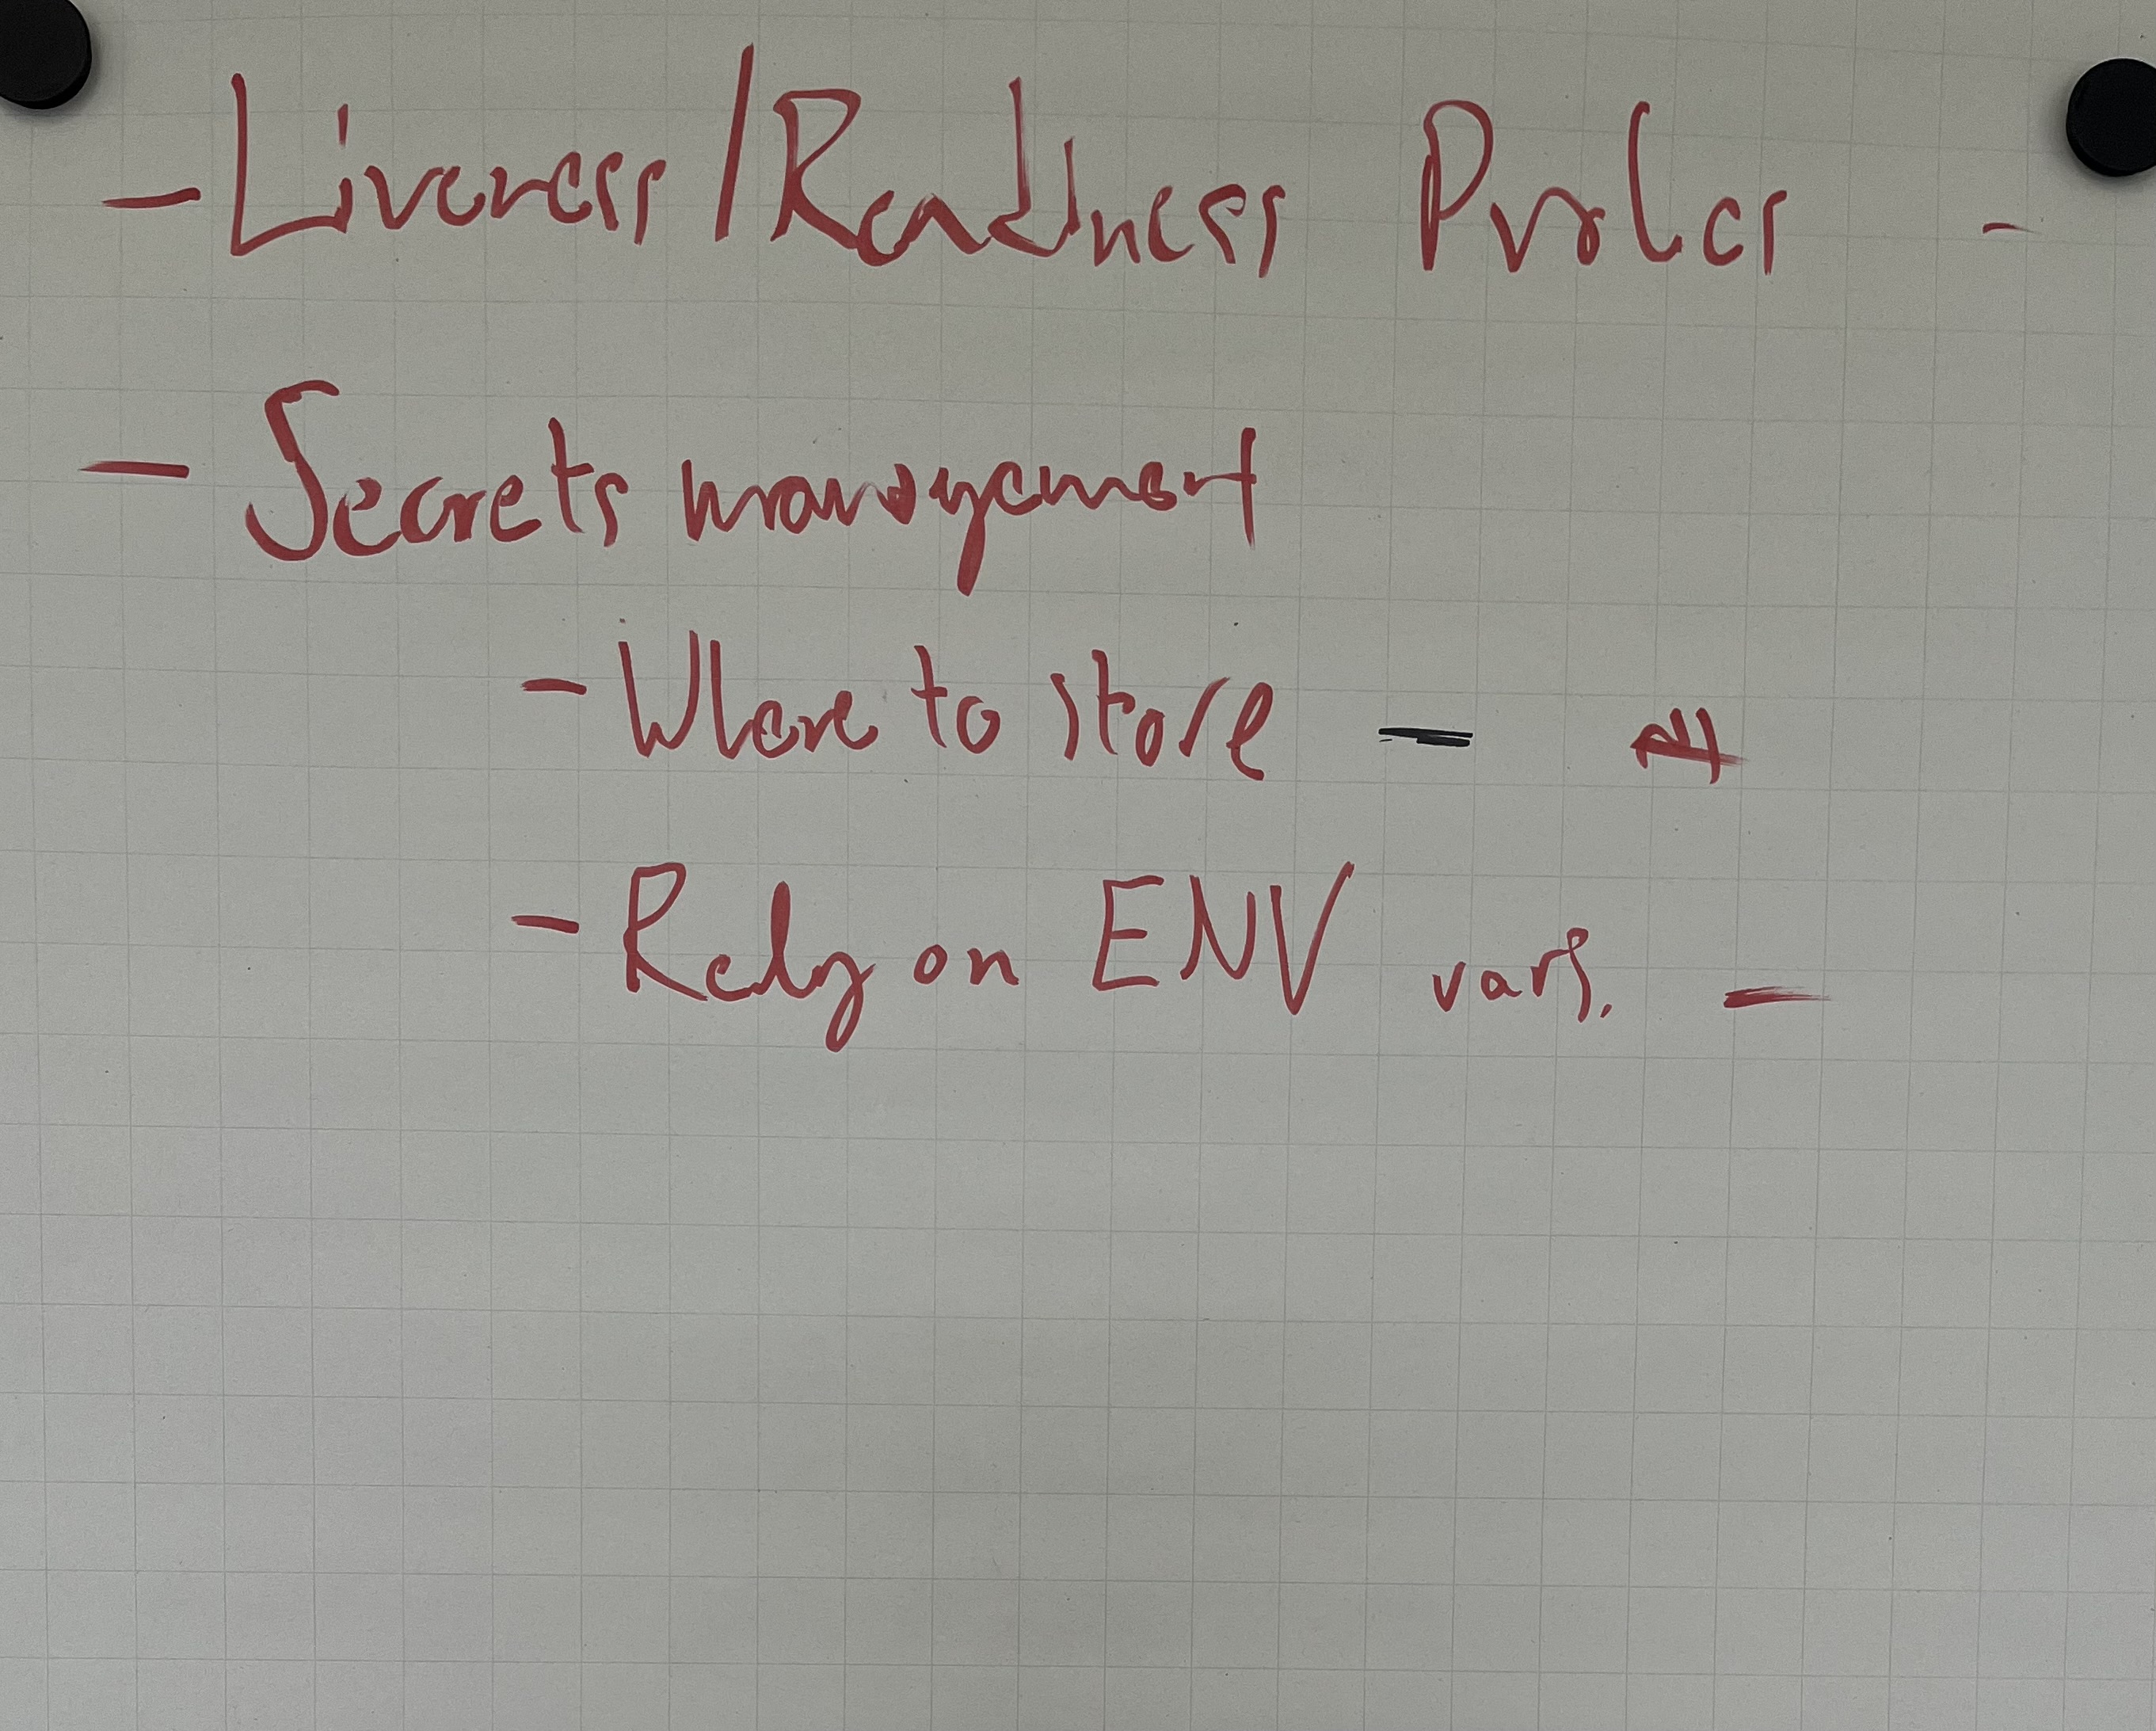 - Liveness/Readness Probes -
- Secrets management
- Where to store -
- Rely on ENV vars. -